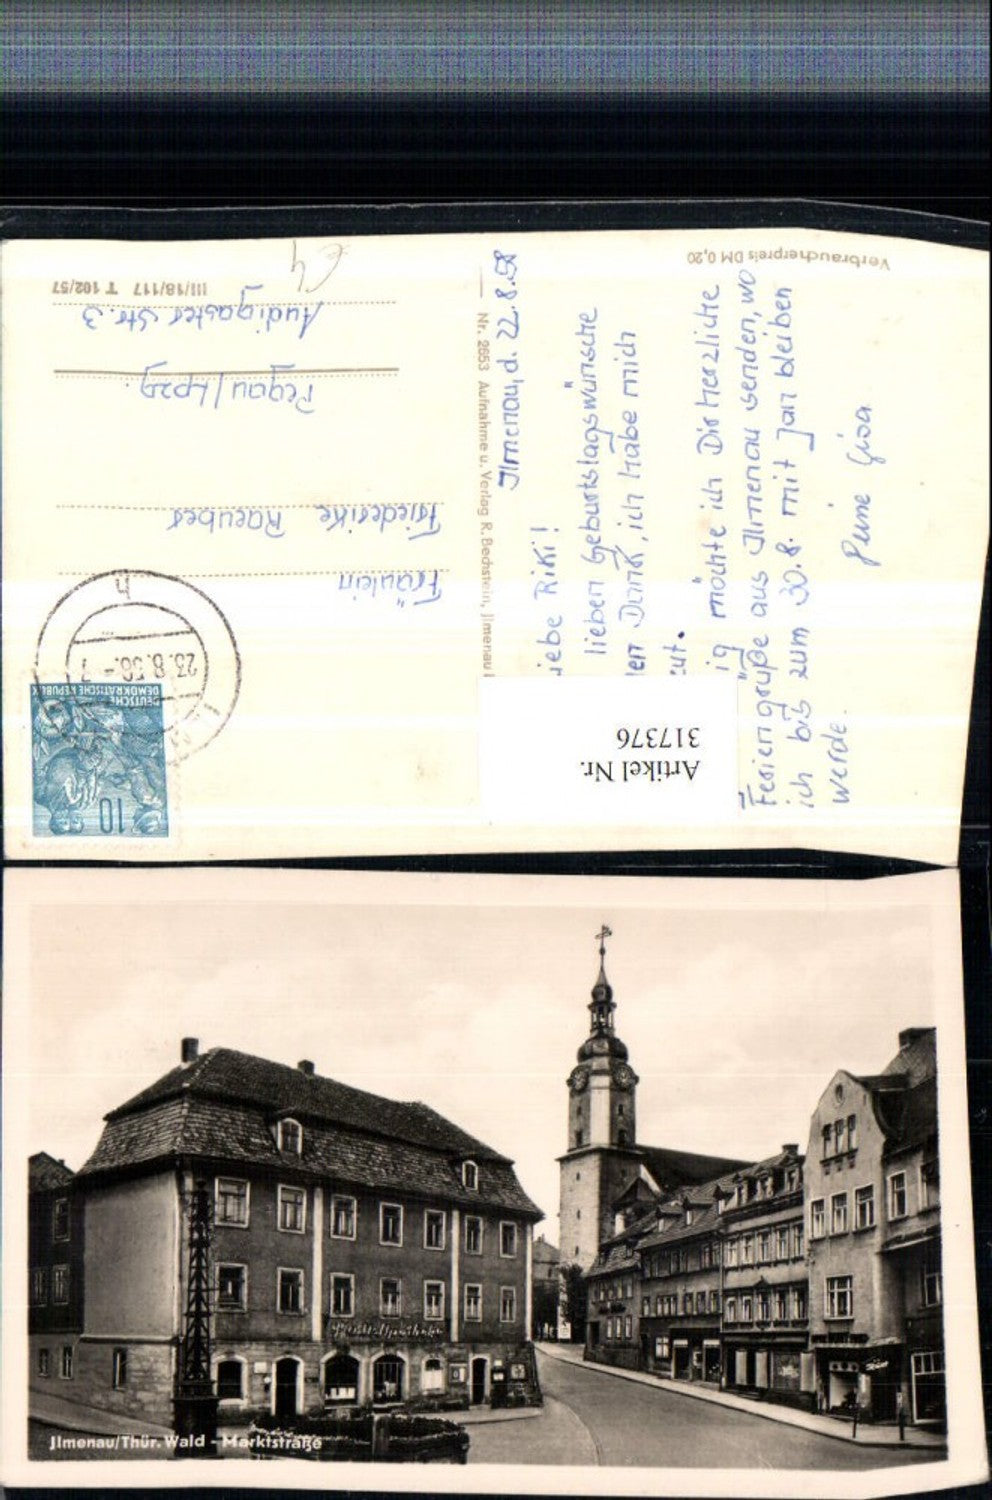 Verbraucherpreis DM 0,20
III/18/117 T 102/57
Nr. 2653 Aufnahme u. Verlag R. Bechstein, Jlmenau
Jlmenau, d. 22.8.58
iebe Riki!
lieben Geburtstagswünsche
en Dank, ich habe mich
eut.
ig möchte ich Dir herzliche
Feriengrüße aus Jlmenau senden, wo
ich bis zum 30.8. mit Jan bleiben
werde.
Gisa
Fräulein
Friederike Raeuber
Pegau/Lpzg.
Audigaster Str. 3
23.8.58.-7
h
DEUTSCHE
DEMOKRATISCHE REPUBLIK
10
Artikel Nr.
317376
Jlmenau/Thür. Wald - Marktstraße